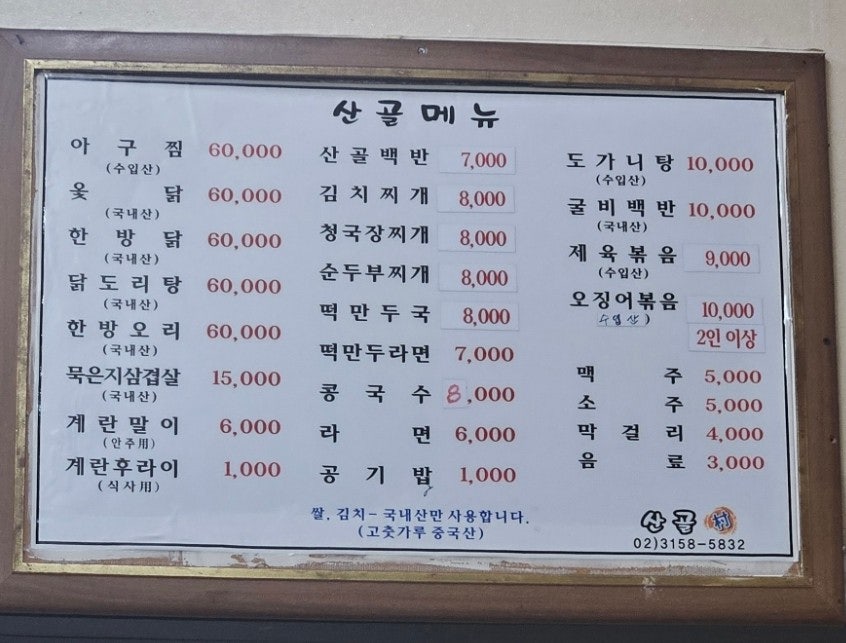 산골메뉴
아구찜 60,000
(수입산)
옻닭 60,000
(국내산)
한방닭 60,000
(국내산)
닭도리탕 60,000
(국내산)
한방오리 60,000
(국내산)
묵은지삼겹살 15,000
(국내산)
계란말이 6,000
(안주用)
계란후라이 1,000
(식사用)
산골백반 7,000
김치찌개 8,000
청국장찌개 8,000
순두부찌개 8,000
떡만두국 8,000
떡만두라면 7,000
콩국수 8,000
라면 6,000
공기밥 1,000
도가니탕 10,000
(수입산)
굴비백반 10,000
(국내산)
제육볶음 9,000
(수입산)
오징어볶음 10,000
수입산) 2인 이상
맥주 5,000
소주 5,000
막걸리 4,000
음료 3,000
쌀, 김치- 국내산만 사용합니다.
(고춧가루 중국산)
산골 村
02)3158-5832